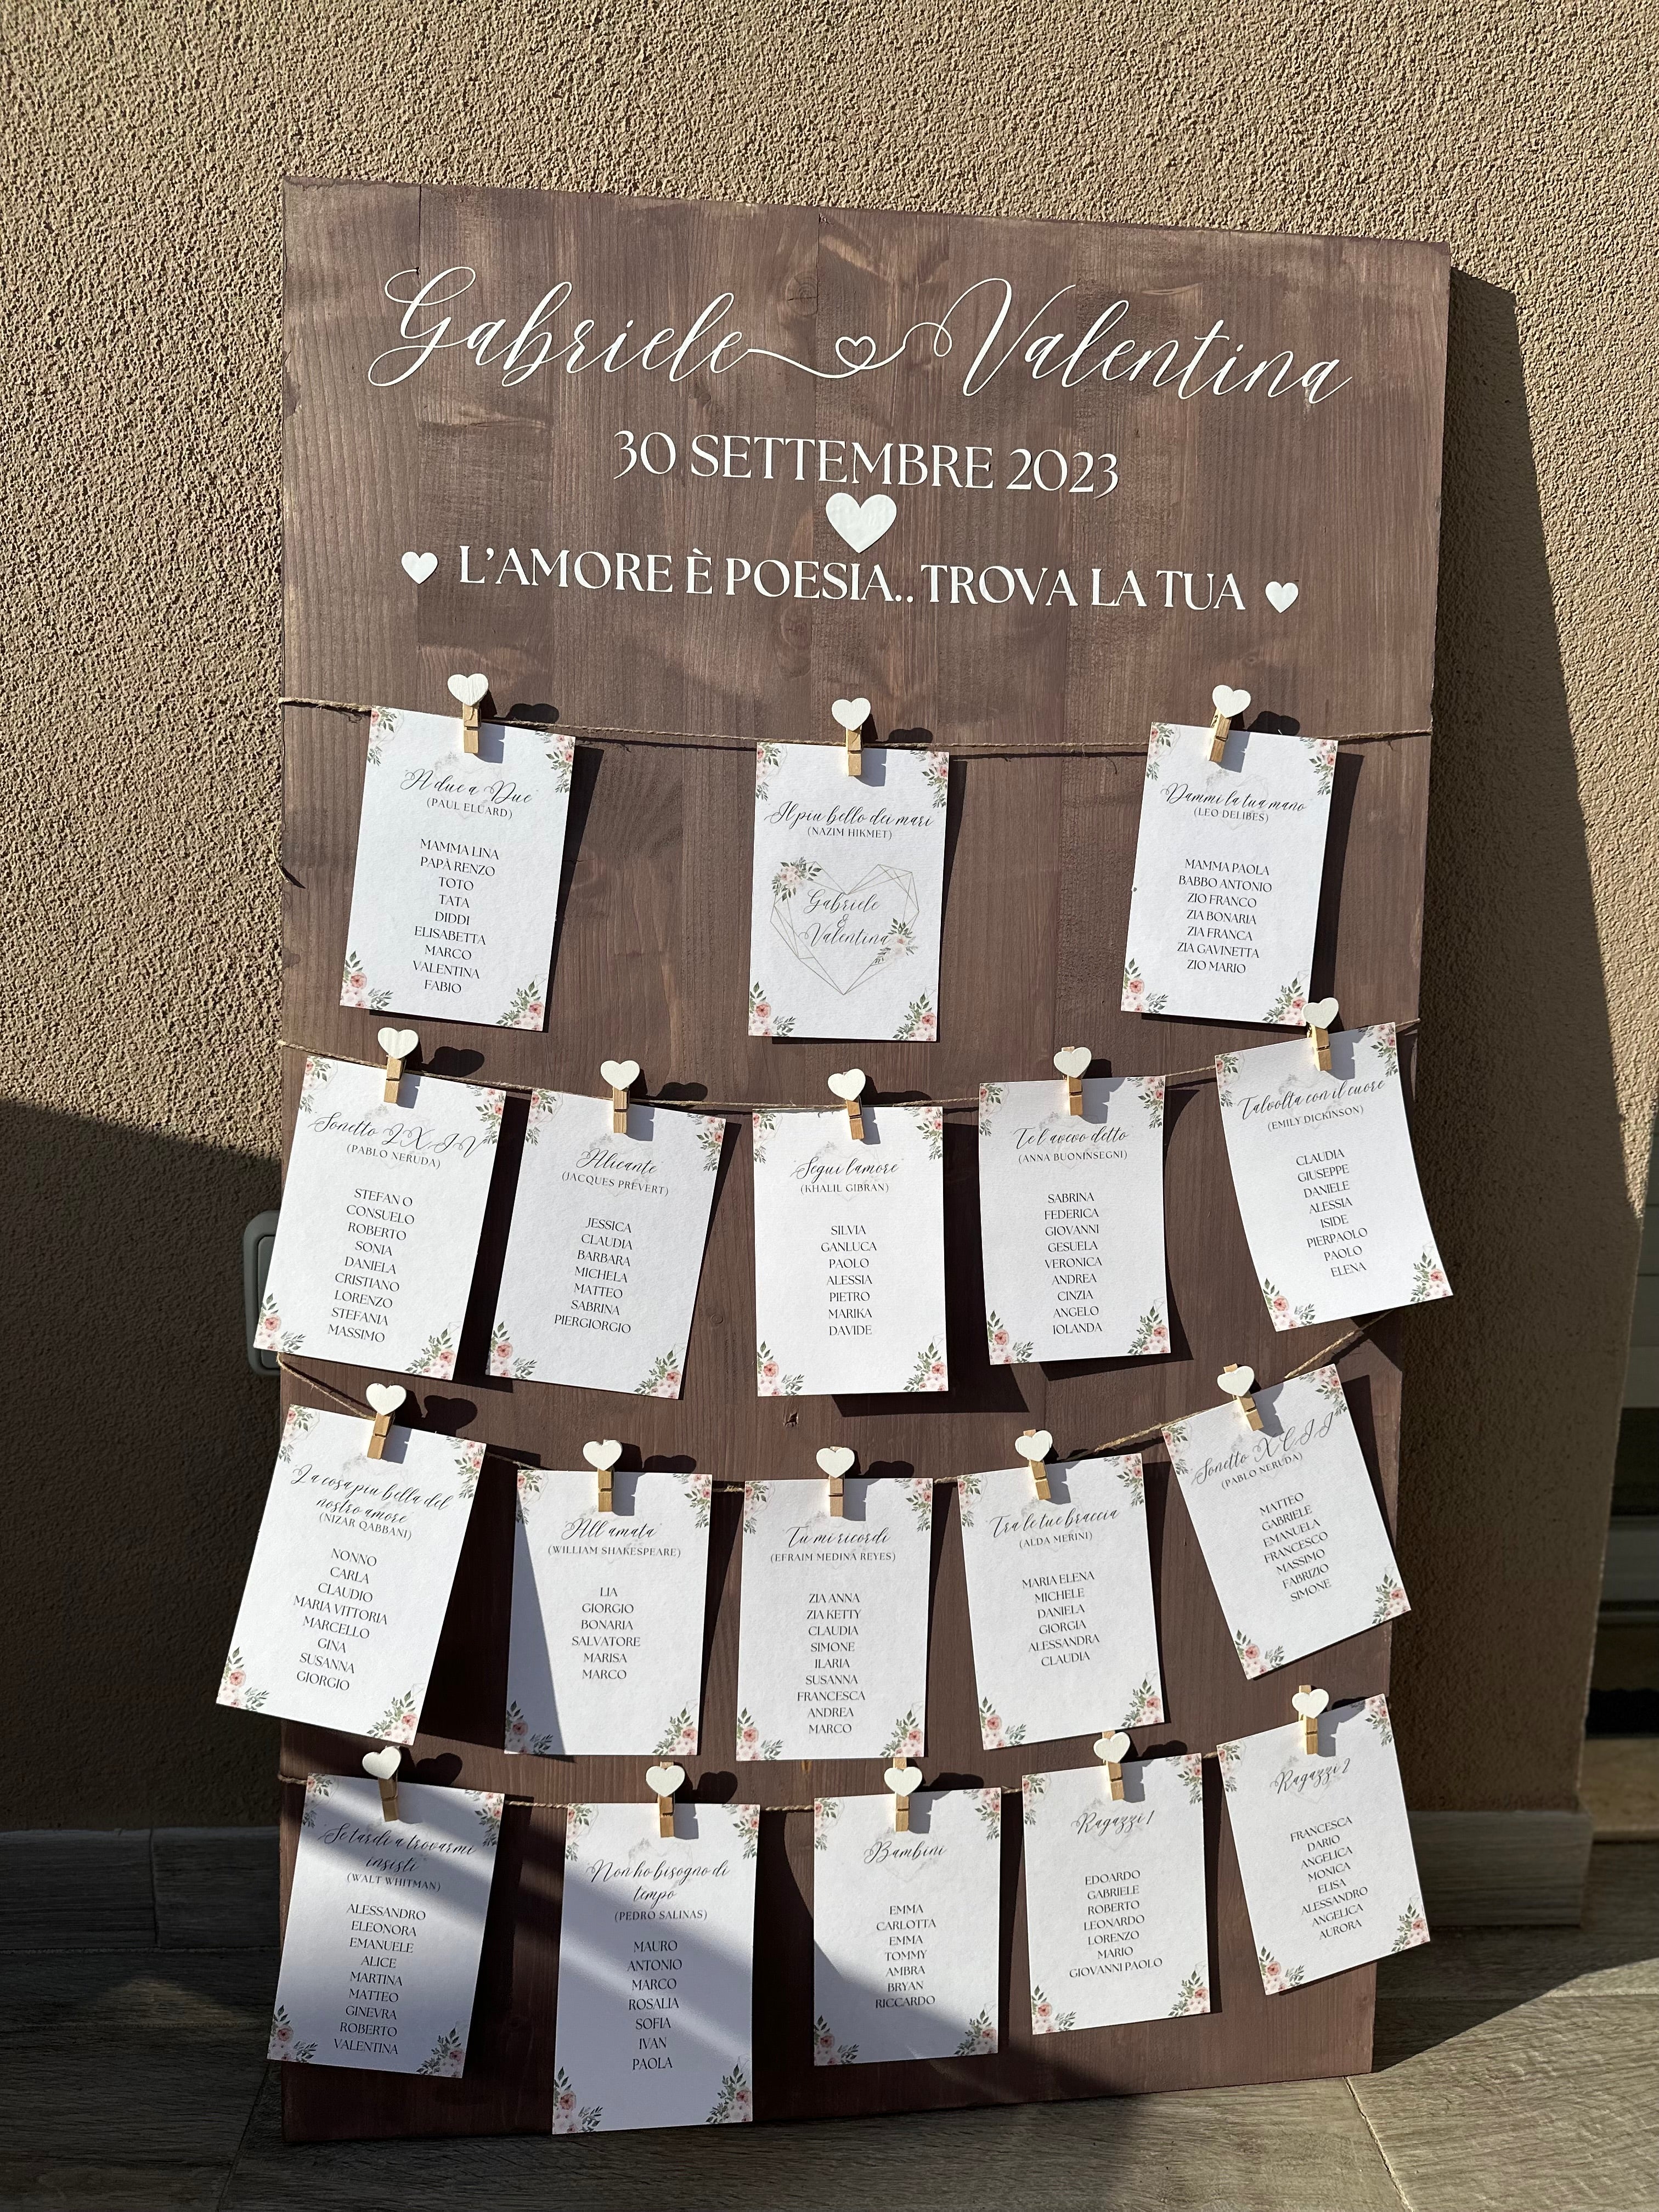 Gabriele Valentina
30 SETTEMBRE 2023
L'AMORE È POESIA.. TROVA LA TUA
"A due a Due"
(PAUL ELUARD)
MAMMA LINA
PAPÀ RENZO
TOTO
TATA
DIDDI
ELISABETTA
MARCO
VALENTINA
FABIO
Il piu bello dei mari
(NAZIM HIKMET)
Gabriele
&
Valentina
Dammi la tua mano
(LEO DELIBES)
MAMMA PAOLA
BABBO ANTONIO
ZIO FRANCO
ZIA BONARIA
ZIA FRANCA
ZIA GAVINETTA
ZIO MARIO
Sonetto LXIV
(PABLO NERUDA)
STEFANO
CONSUELO
ROBERTO
SONIA
DANIELA
CRISTIANO
LORENZO
STEFANIA
MASSIMO
"Alicante"
(JACQUES PRÉVERT)
JESSICA
CLAUDIA
BARBARA
MICHELA
MATTEO
SABRINA
PIERGIORGIO
"Segui l'amore"
(KHALIL GIBRAN)
SILVIA
GANLUCA
PAOLO
ALESSIA
PIETRO
MARIKA
DAVIDE
Te l'avevo detto
(ANNA BUONINSEGNI)
SABRINA
FEDERICA
GIOVANNI
GESUELA
VERONICA
ANDREA
CINZIA
ANGELO
IOLANDA
Talvolta con il cuore
(EMILY DICKINSON)
CLAUDIA
GIUSEPPE
DANIELE
ALESSIA
ISIDE
PIERPAOLO
PAOLO
ELENA
La cosa piu bella del
nostro amore
(NIZAR QABBANI)
NONNO
CARLA
CLAUDIO
MARIA VITTORIA
MARCELLO
GINA
SUSANNA
GIORGIO
"All'amata"
(WILLIAM SHAKESPEARE)
LIA
GIORGIO
BONARIA
SALVATORE
MARISA
MARCO
Tu mi ricordi
(EFRAIM MEDINA REYES)
ZIA ANNA
ZIA KETTY
CLAUDIA
SIMONE
ILARIA
SUSANNA
FRANCESCA
ANDREA
MARCO
Tra le tue braccia
(ALDA MERINI)
MARIA ELENA
MICHELE
DANIELA
GIORGIA
ALESSANDRA
CLAUDIA
Sonetto XCII
(PABLO NERUDA)
MATTEO
GABRIELE
EMANUELA
FRANCESCO
MASSIMO
FABRIZIO
SIMONE
Se tardi a trovarmi
insisti
(WALT WHITMAN)
ALESSANDRO
ELEONORA
EMANUELE
ALICE
MARTINA
MATTEO
GINEVRA
ROBERTO
VALENTINA
Non ho bisogno di
tempo
(PEDRO SALINAS)
MAURO
ANTONIO
MARCO
ROSALIA
SOFIA
IVAN
PAOLA
Bambini
EMMA
CARLOTTA
EMMA
TOMMY
AMBRA
BRYAN
RICCARDO
Ragazzi 1
EDOARDO
GABRIELE
ROBERTO
LEONARDO
LORENZO
MARIO
GIOVANNI PAOLO
Ragazzi 2
FRANCESCA
DARIO
ANGELICA
MONICA
ELISA
ALESSANDRO
ANGELICA
AURORA